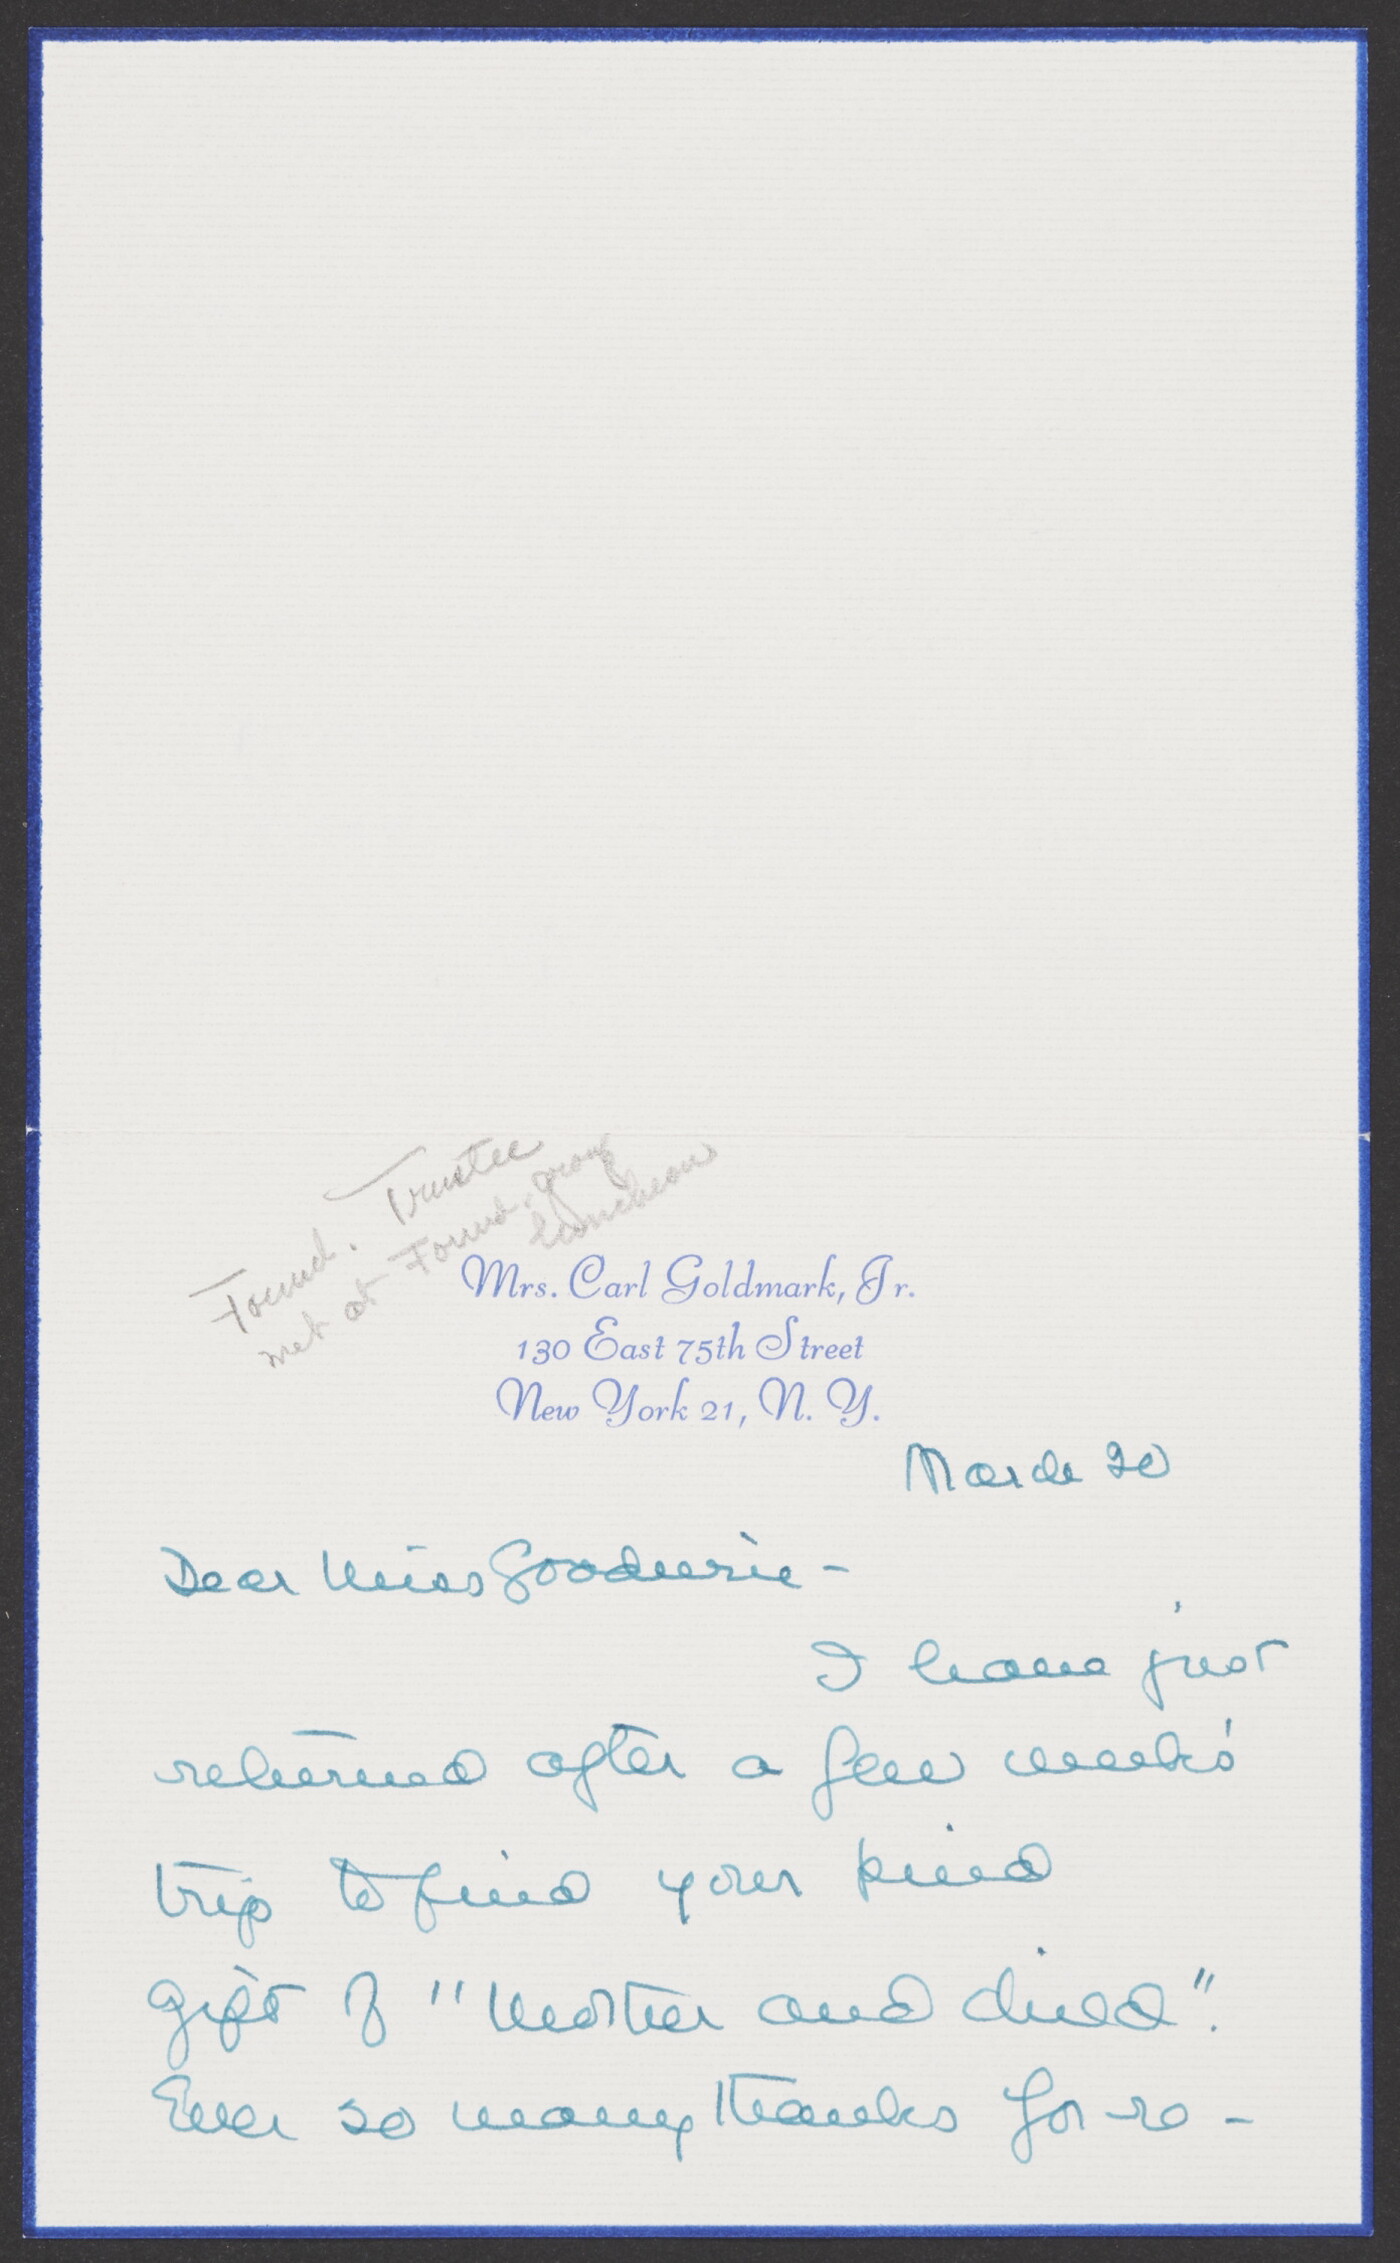 Found. Trustee
met at Found. group
luncheon
Mrs. Carl Goldmark, Jr.
130 East 75th Street
New York 21, N. Y.
March 20
Dear Miss Goodwin -
I have just
returned after a few weeks'
trip to find your kind
gift of "Mother and Child".
Ever so many thanks for re -